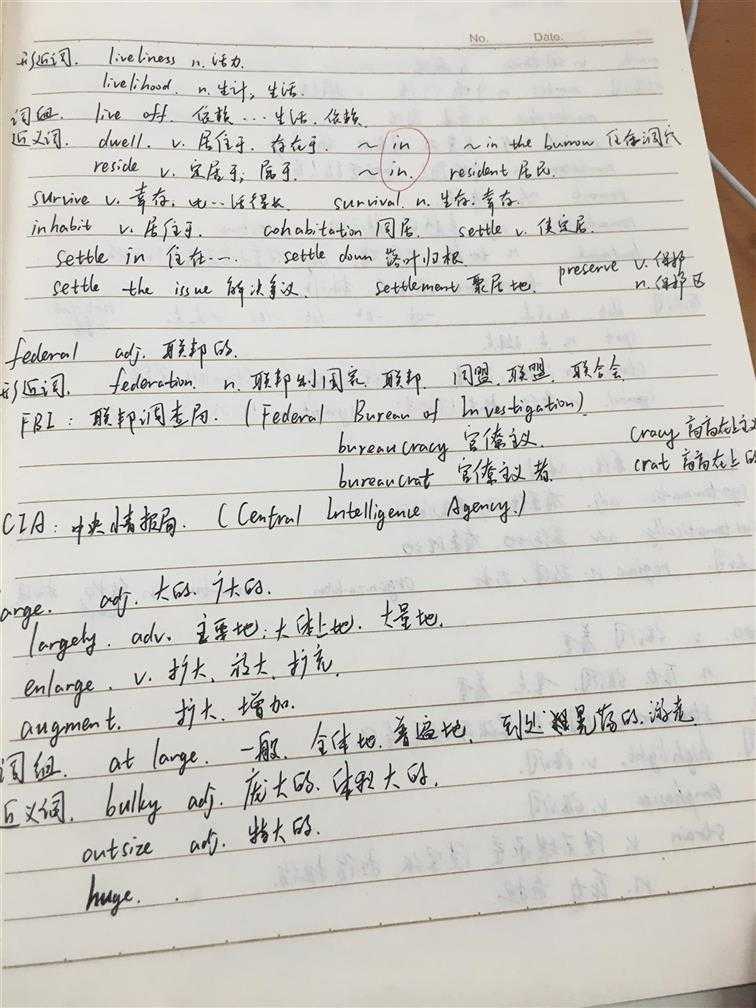 No. Date.
形近词. liveliness n. 活力.
livelihood. n. 生计, 生活.
词组. live off. 依赖…生活. 依赖.
近义词. dwell. v. 居住于. 存在于. ~ in ~ in the burrow 住在洞穴
reside v. 定居于; 属于. ~ in. resident 居民.
survive v. 幸存, 比…活得长. survival. n. 生存. 幸存.
inhabit v. 居住于. cohabitation 同居. settle v. 使定居.
settle in 住在…. settle down 落叶归根 preserve v. 保护
settle the issue 解决争议. settlement 聚居地. n. 保护区
federal adj. 联邦的.
形近词. federation. n. 联邦制国家. 联邦. 同盟. 联盟. 联合会
FBI: 联邦调查局. (Federal Bureau of Investigation)
bureaucracy 官僚主义. cracy 高高在上主义
bureaucrat 官僚主义者. crat 高高在上的
CIA: 中央情报局. (Central Intelligence Agency.)
arge. adj. 大的. 广大的.
largely. adv. 主要地; 大体上地. 大量地.
enlarge. v. 扩大. 放大. 扩充.
augment. 扩大. 增加.
词组. at large. 一般. 全体地. 普遍地. 到处晃荡的. 游走
近义词. bulky adj. 庞大的. 体积大的.
outsize adj. 特大的.
huge. .